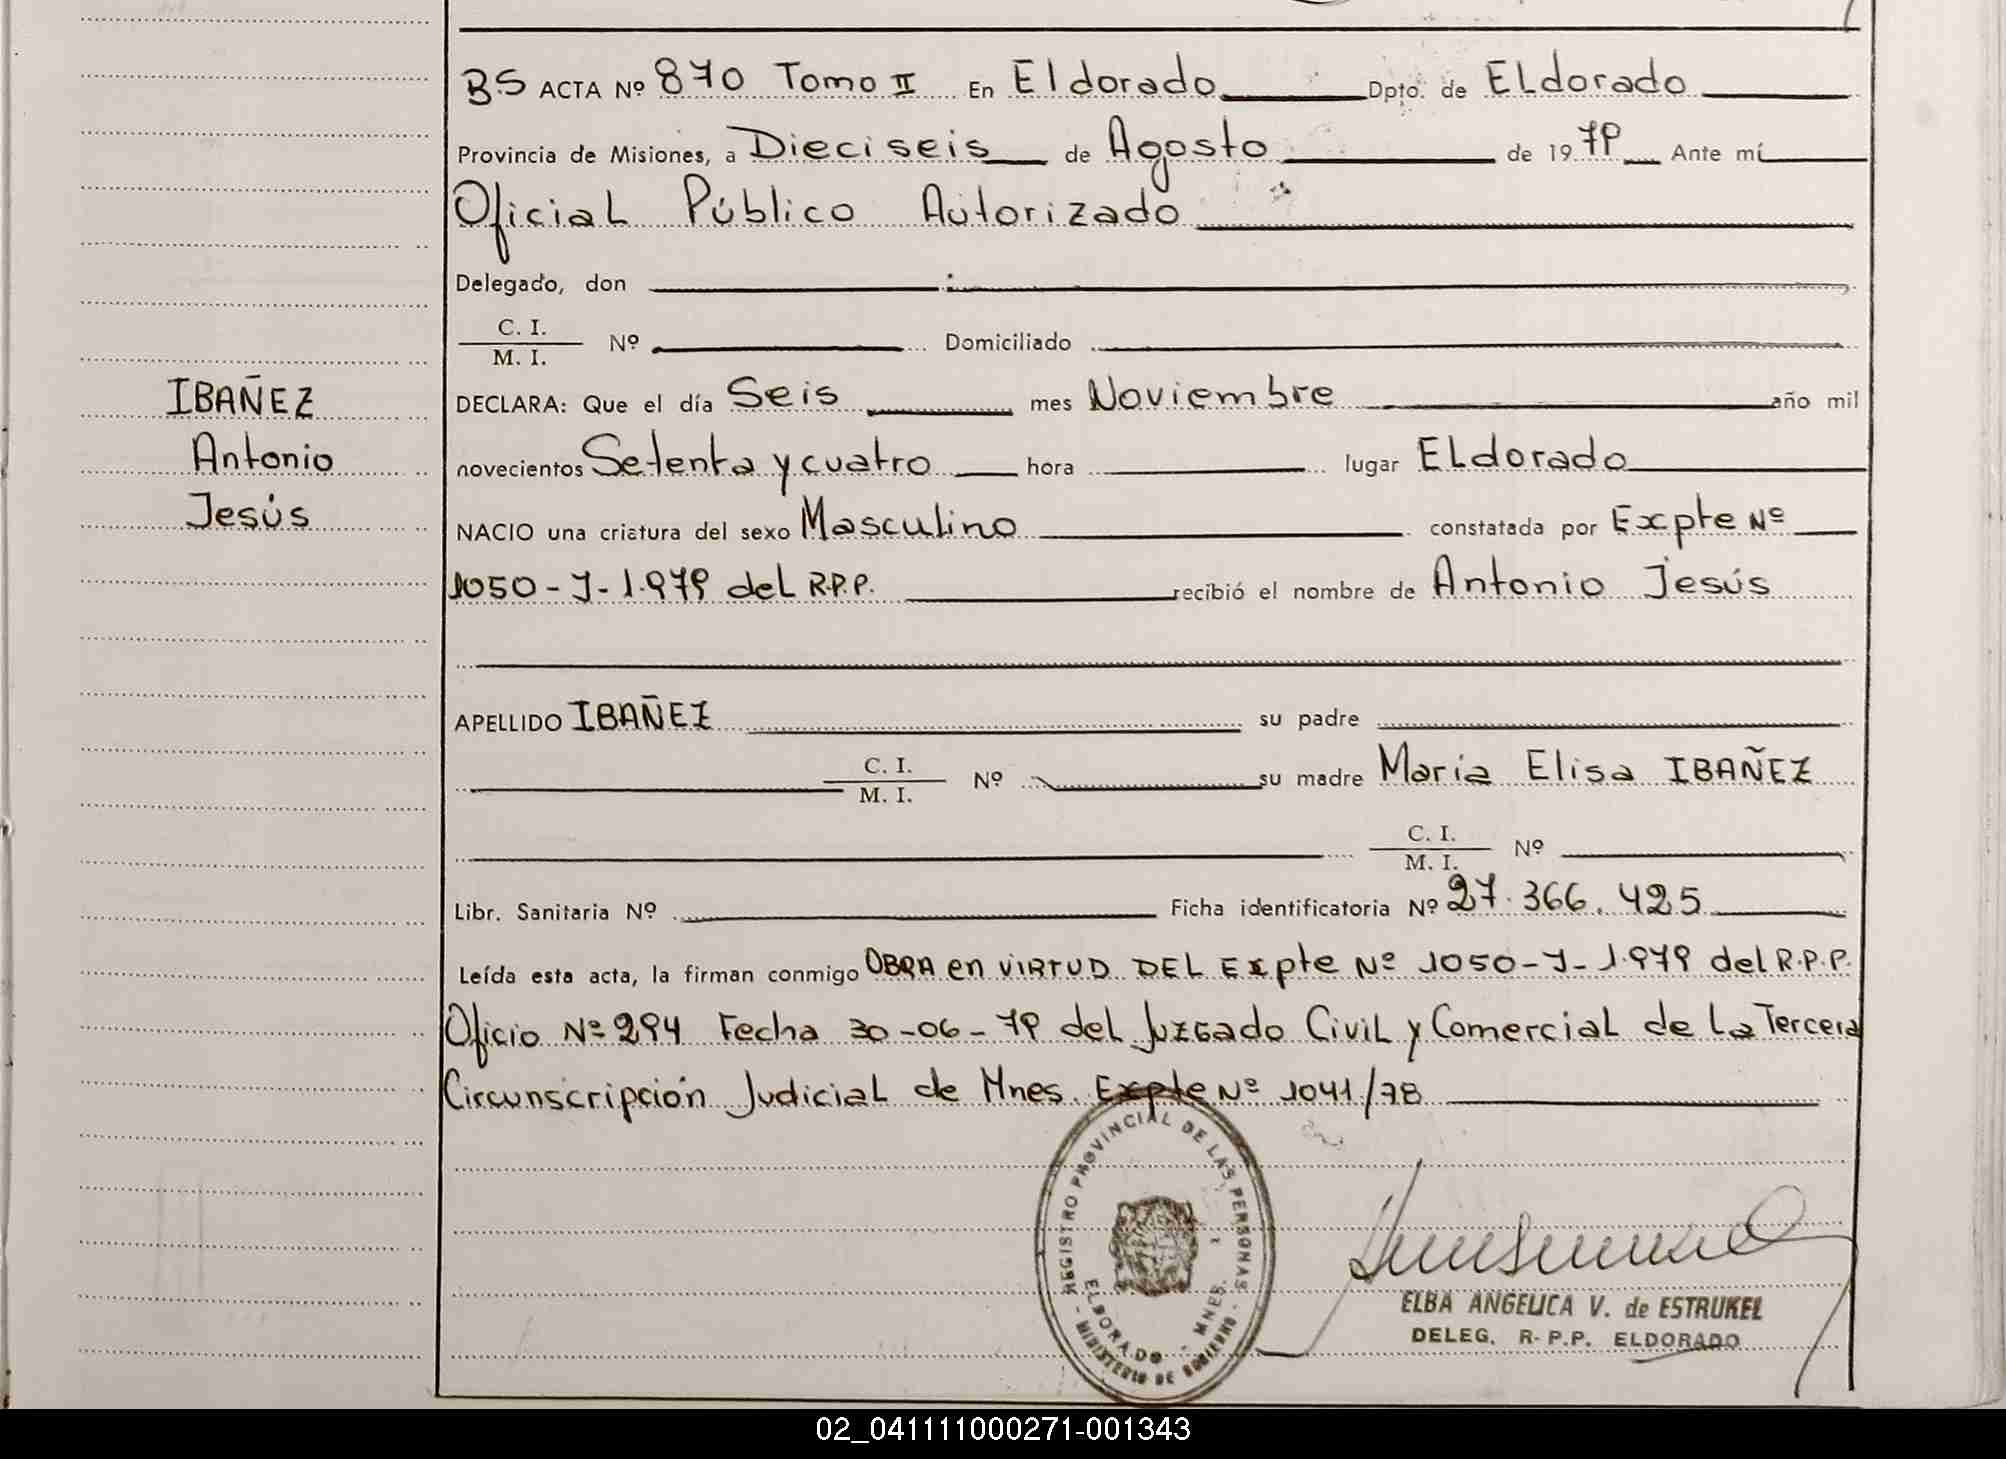 BS ACTA Nº 870 Tomo II En Eldorado Dpto. de ELdorado
Provincia de Misiones, a Dieciseis de Agosto de 1979 Ante mí
Oficial Público Autorizado
Delegado, don
C. I.
M. I. Nº Domiciliado
IBAÑEZ DECLARA: Que el día Seis mes Noviembre año mil
Antonio novecientos Setenta y cuatro hora lugar ELdorado
Jesús NACIO una criatura del sexo Masculino constatada por Expte Nº
1050-J-1.979 del R.P.P. recibió el nombre de Antonio Jesús
APELLIDO IBAÑEZ su padre
C. I.
M. I. Nº su madre María Elisa IBAÑEZ
C. I.
M. I. Nº
Libr. Sanitaria Nº Ficha identificatoria Nº 27.366.425
Leída esta acta, la firman conmigo OBRA en VIRTUD DEL Expte Nº 1050-J-1.979 del R.P.P.
Oficio Nº 294 Fecha 30-06-79 del Juzgado Civil y Comercial de La Tercera
Circunscripción Judicial de Mnes. Expte Nº 1041/78
REGISTRO PROVINCIAL DE LAS PERSONAS
ELDORADO - MNES.
- MINISTERIO DE GOBIERNO -
ELBA ANGELICA V. de ESTRUKEL
DELEG. R. P.P. ELDORADO
02_041111000271-001343